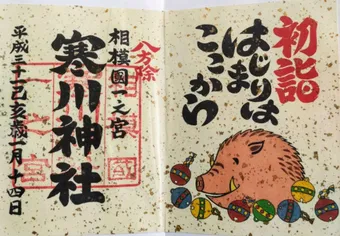 初詣
はじまりは
ここから
八方除
相模國一之宮
寒川神社
平成三十一己亥歳一月十四日